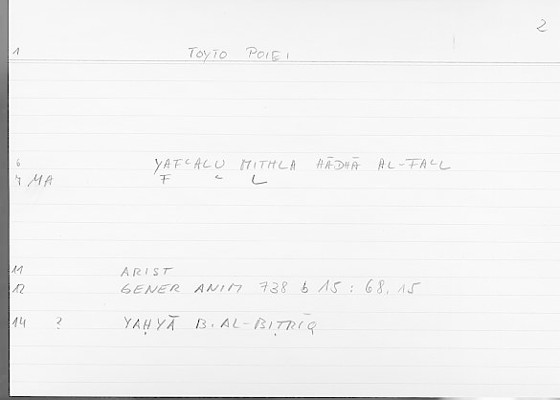 2
1 TOYTO POIEI
6 YAFᶜALU MITHLA HĀDHĀ AL-FAᶜL
7 MA F ᶜ L
11 ARIST
12 GENER ANIM 738 b 15 : 68.15
14 ? YAḤYĀ B. AL-BIṬRĪQ